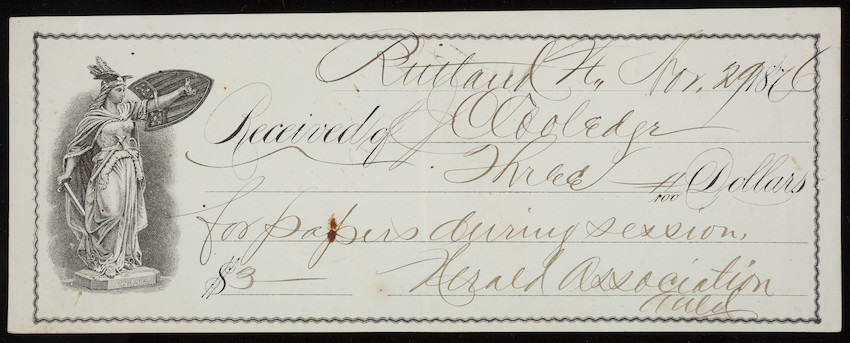 Rutland Vt., Nov. 29 1876
Received of J C Coolidge
Three — #/100 Dollars
for papers during session.
$3 — Herald Association